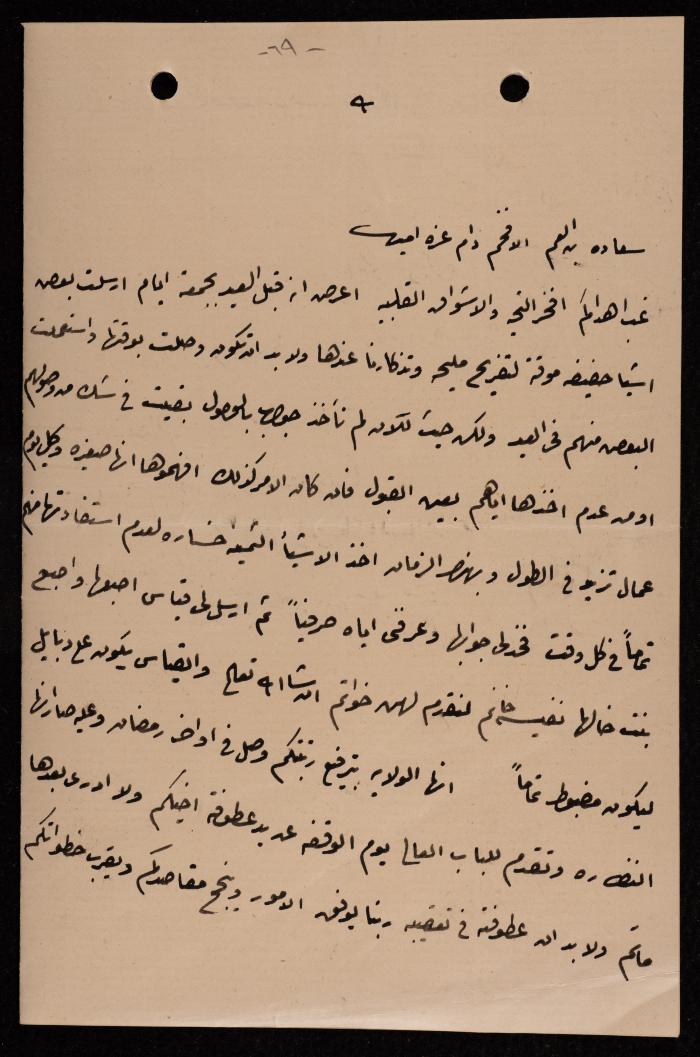 -٦٩-
سعاده بن العم الافخم دام عزه امين
غب اهدائكم افخر التحيه والاشواق القلبيه اعرض انه قبل العيد بجمعة ايام ارسلت بعض
اشيا خفيفه موقة لتفريح مليحه وتذكارنا عندها ولا بد ان تكون وصلت بوقتها واستعملت
البعض منهم في العيد ولكن حيث للآن لم نأخذ جوابها بالوصول بقيت في شك من وصولهم
او من عدم اخذها اياهم بعين القبول فان كان الامر كذلك افهموها انها صغيره وكل يوم
عمال تزيد في الطول وبهذا الزمان اخذ الاشيأ الثمينه خساره لعدم استفادتها منهم
تماماً في كل وقت فخذ لي جوابها وعرفني اياه حرفياً ثم ارسل لي قياس اصبعها واصبع
بنت خالها نفيسه خانم لنقدم لهن خواتم ان شا الله تعالى والقياس يكون على دبايل
ليكون مضبوط تماماً انها الولايه بترفيع رتبتكم وصل في اواخر رمضان وعليه صار انها
النظاره وتقدم للباب العالي يوم الوقفه عن يد عطوفة اخيكم ولا ادري بعدها
ماتم ولا بد ان عطوفته في تعقيبه ربنا يوفق الامور وينجح مقاصدكم ويقرب خطواتكم